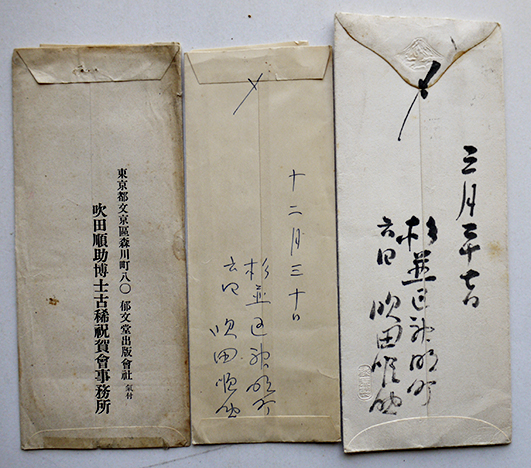 東京都文京區森川町八〇 郁文堂出版會社 氣付
吹田順助博士古稀祝賀會事務所
十二月三十日
杉並区神明町
吹田順助
三月二十七日
杉並区神明町
吹田順助